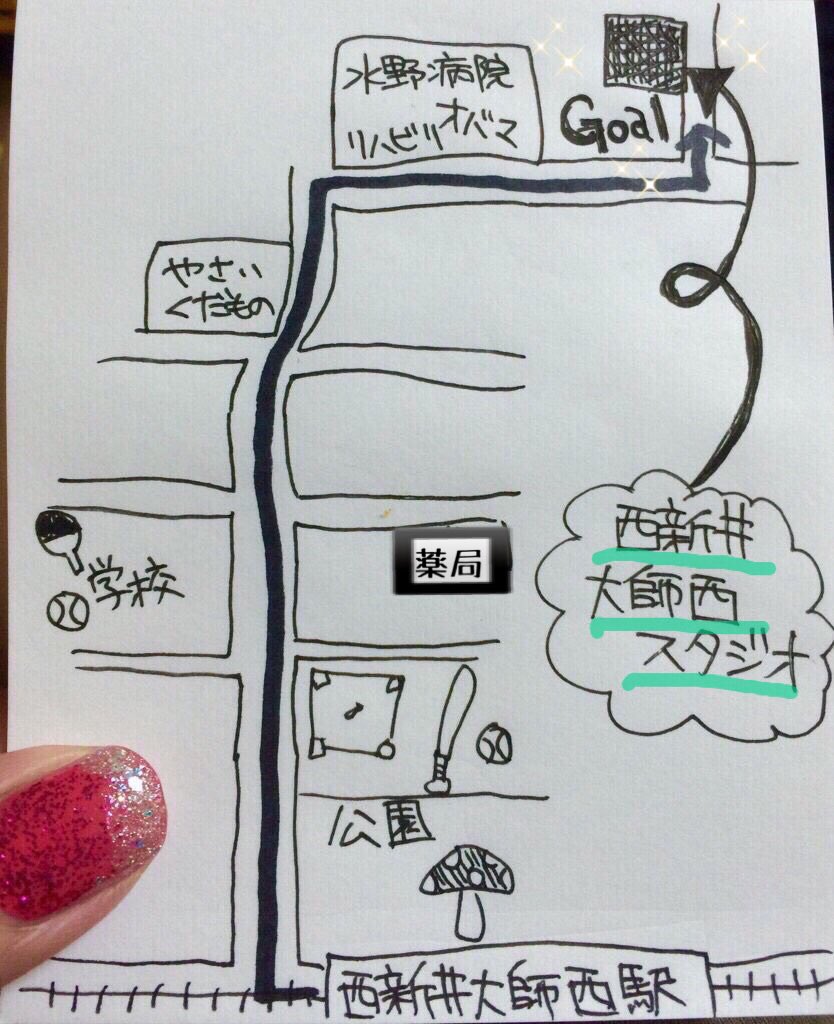 水野病院
リハビリオバマ
Goal
やさい
くだもの
学校
薬局
西新井
大師西
スタジオ
公園
西新井大師西駅